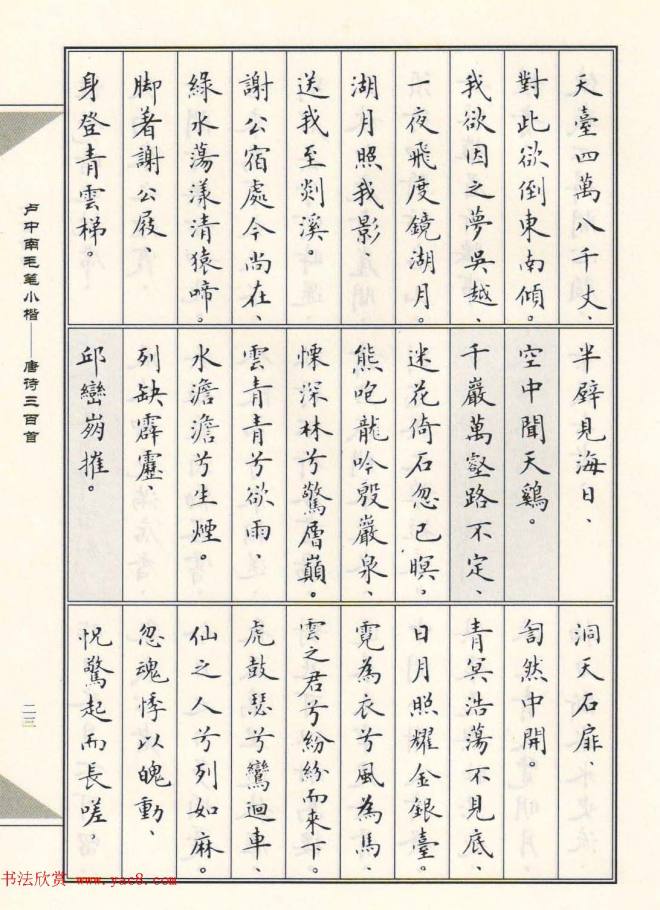 天臺四萬八千丈、
對此欲倒東南傾。
我欲因之夢吳越、
一夜飛度鏡湖月。
湖月照我影、
送我至剡溪。
謝公宿處今尚在、
綠水蕩漾清猿啼。
脚著謝公屐、
身登青雲梯。
半壁見海日、
空中聞天鷄。
千巖萬壑路不定、
迷花倚石忽已暝。
熊咆龍吟殷巖泉、
慄深林兮驚層巔。
雲青青兮欲雨、
水澹澹兮生煙。
列缺霹靂、
邱巒崩摧。
洞天石扉、
訇然中開。
青冥浩蕩不見底、
日月照耀金銀臺。
霓為衣兮風為馬、
雲之君兮紛紛而來下。
虎鼓瑟兮鸞迴車、
仙之人兮列如麻。
忽魂悸以魄動、
怳驚起而長嗟、
卢中南毛笔小楷——唐诗三百首
二三
书法欣赏 www.yac8.com